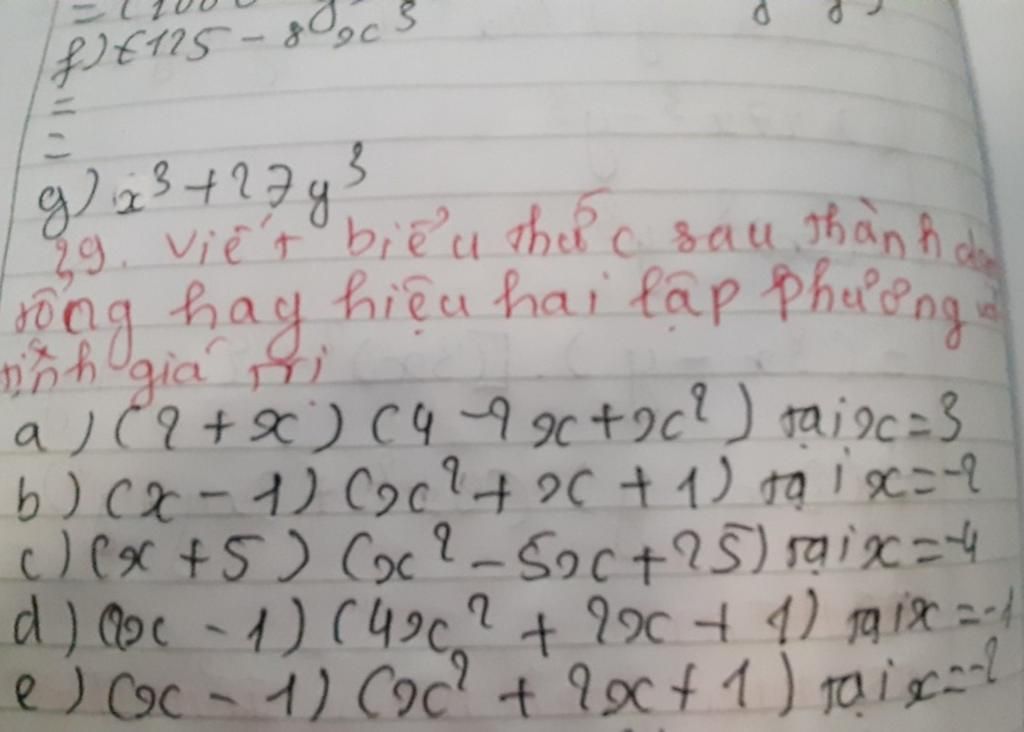 f) €125 - 8x³
=
=
g) x³ + 27y³
39. Viết biểu thức sau thành
tổng hay hiệu hai lập phương
tính giá trị
a) (2 + x) (4 - 2x + x²) tại x = 3
b) (x - 1) (x² + x + 1) tại x = -2
c) (x + 5) (x² - 5x + 25) tại x = -4
d) (2x - 1) (4x² + 2x + 1) tại x = -1
e) (x - 1) (x² + 2x + 1) tại x = -2